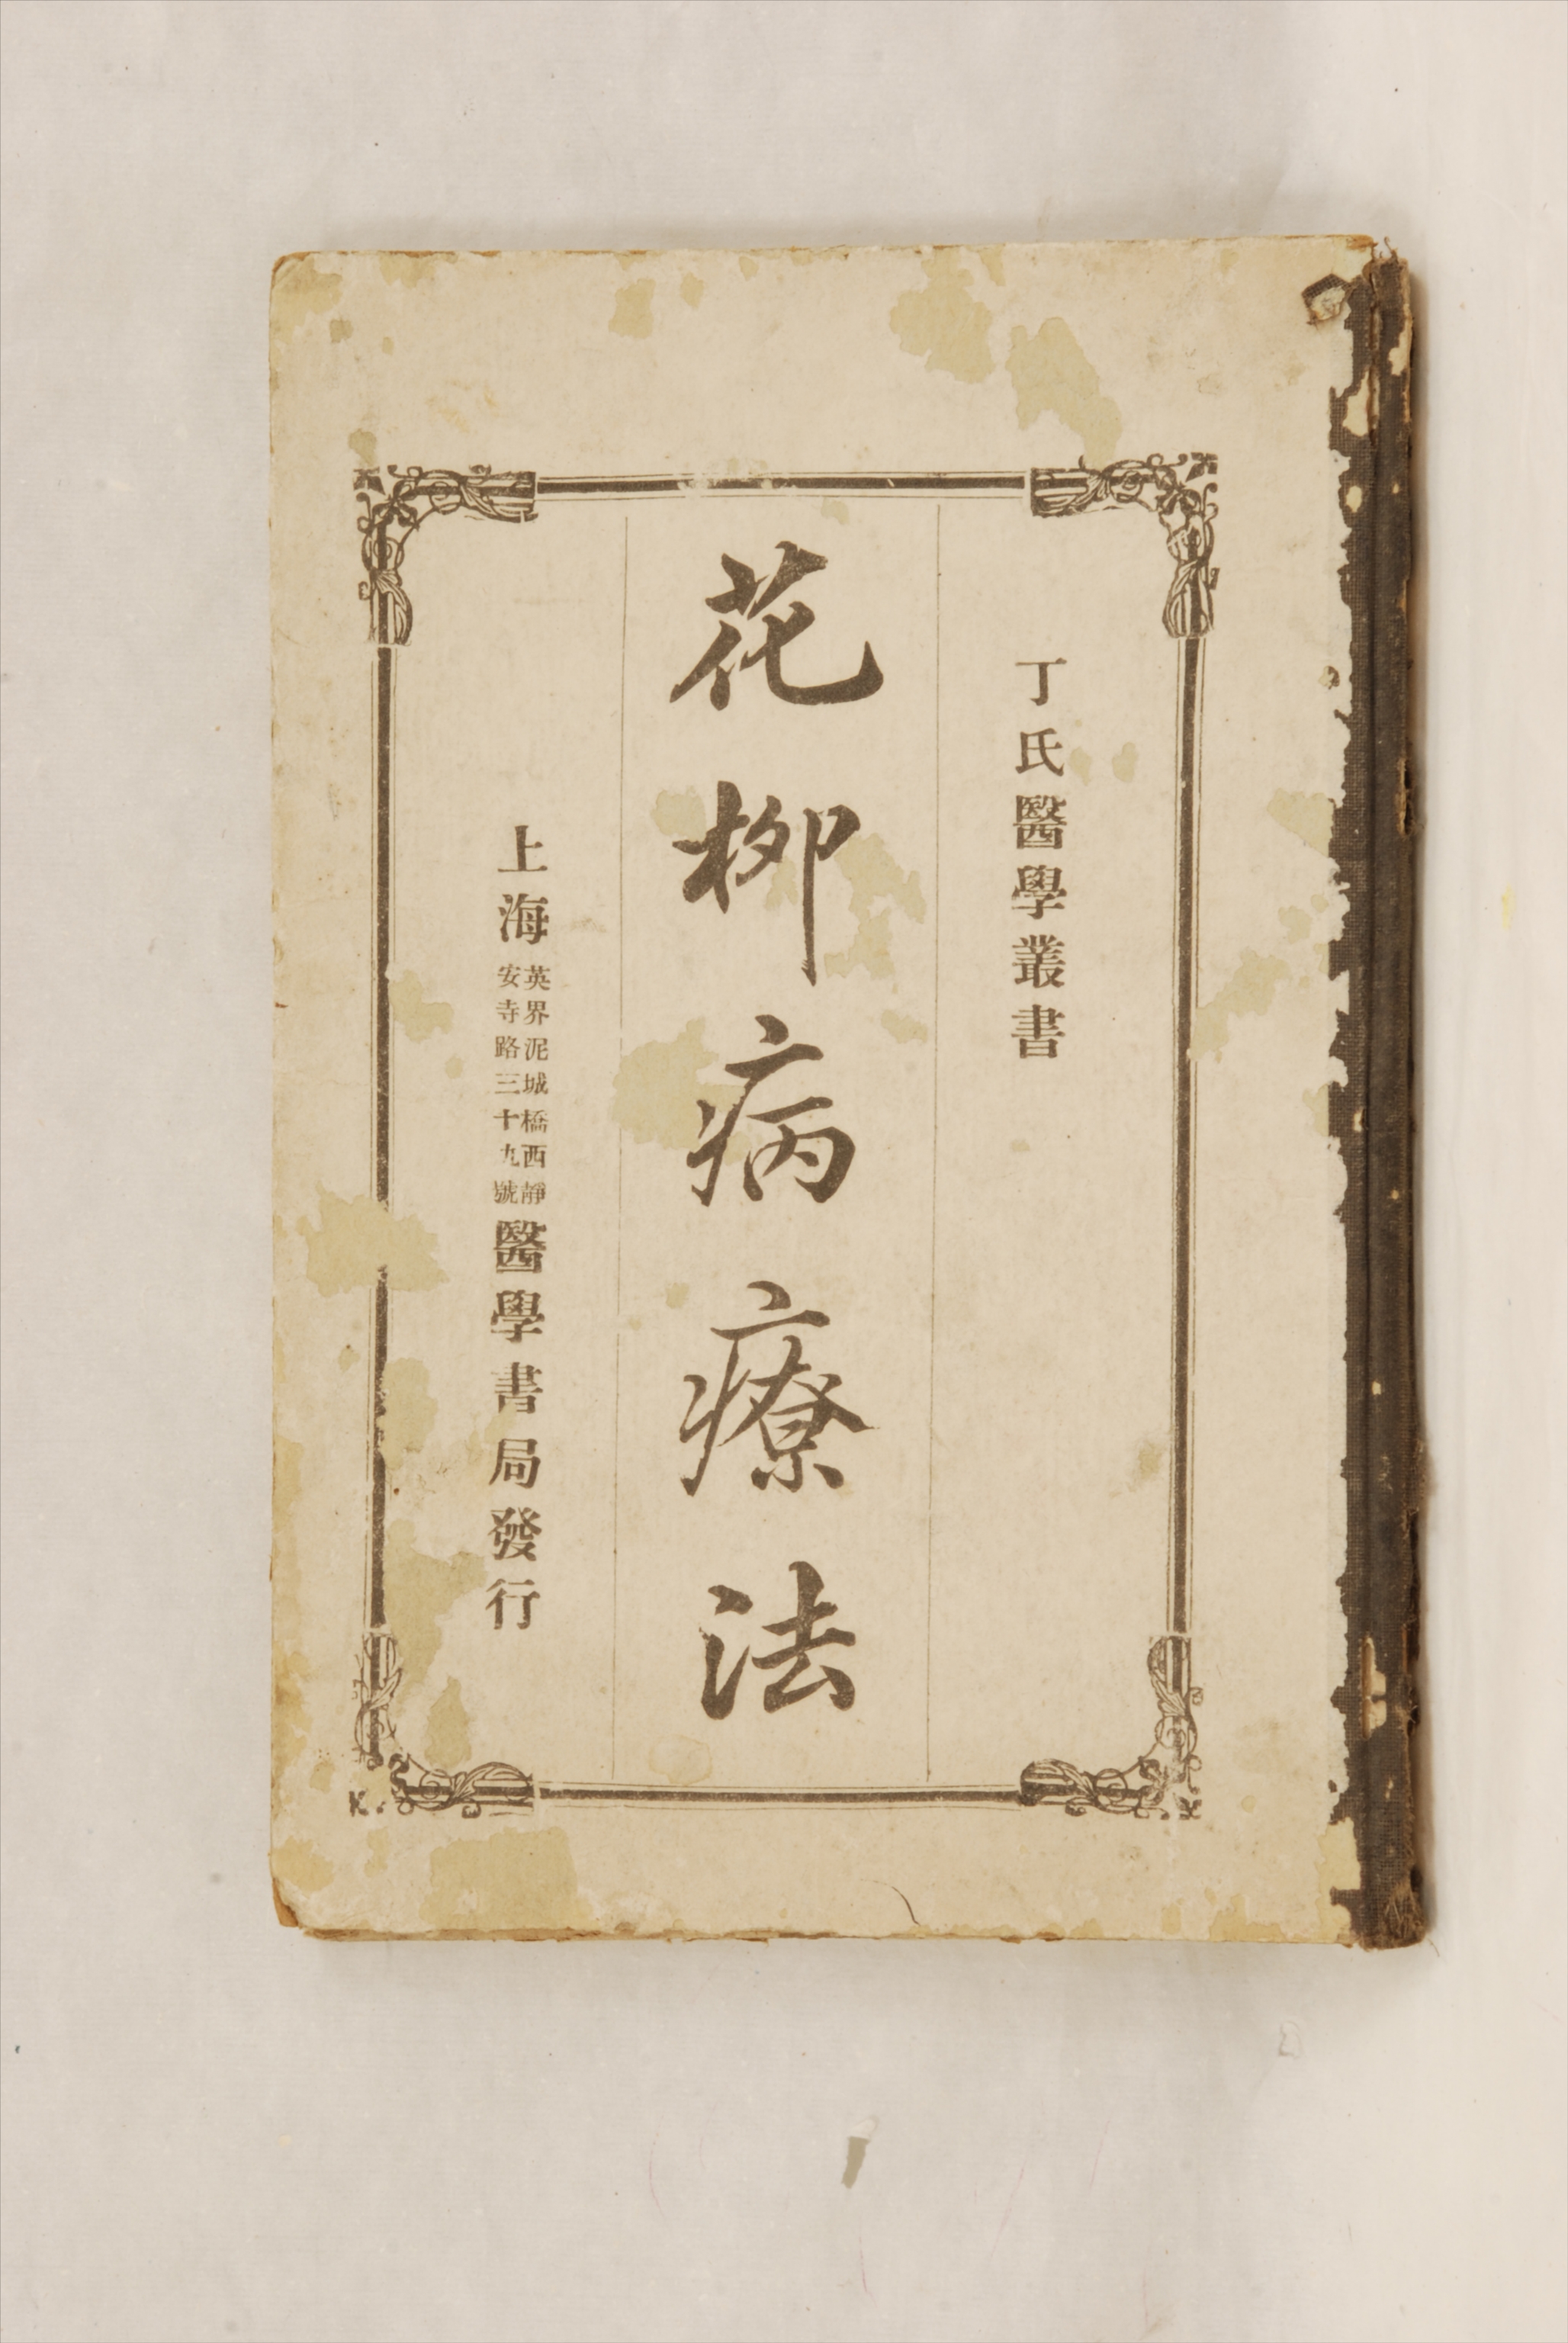 丁氏醫學叢書
花柳病療法
上海
英界泥城橋西靜
安寺路三十九號
醫學書局發行